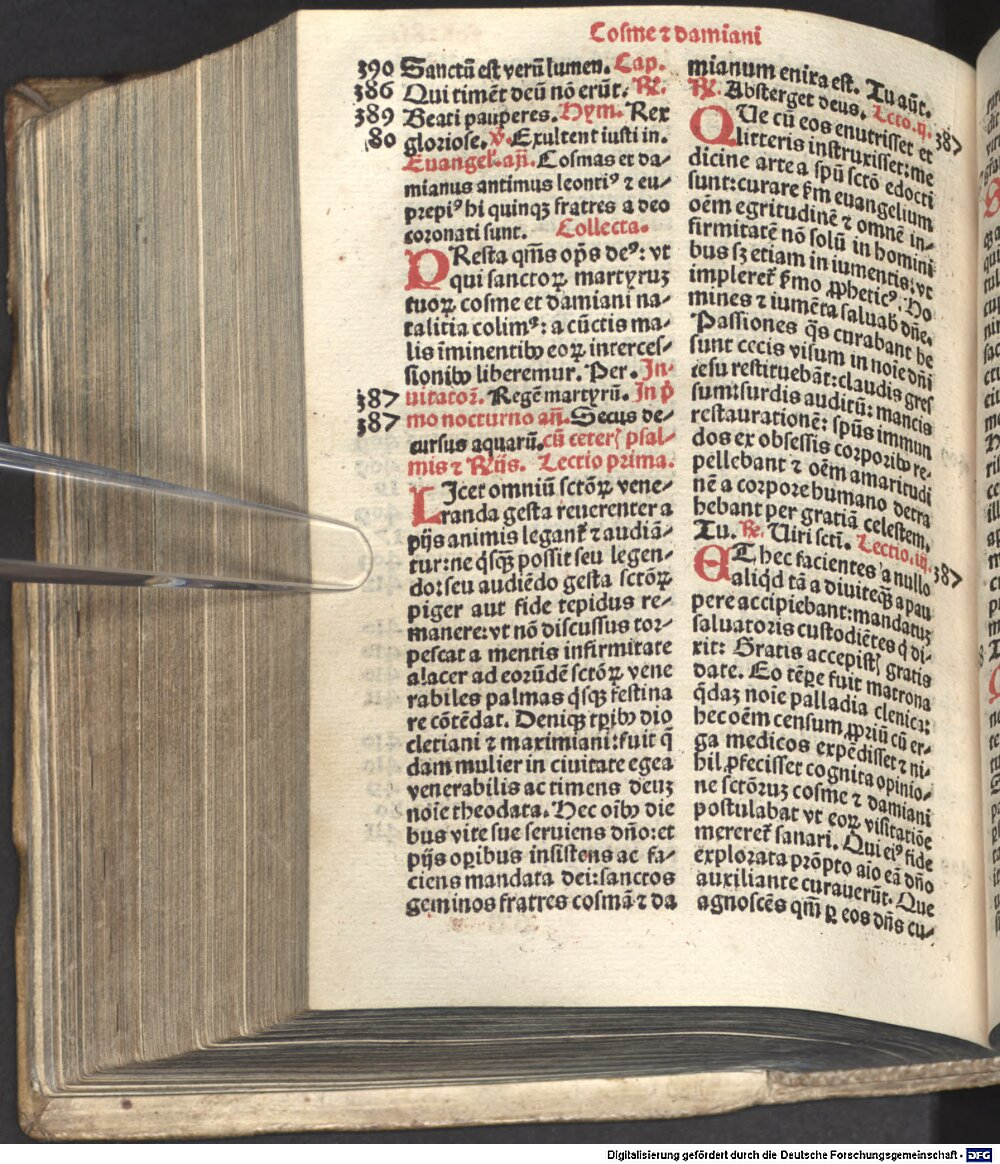 Cosme ⁊ Damiani
390 Sanctū est verū lumen. Cap.
386 Qui timēt deū nō erūt. R̃.
389 Beati pauperes. Hym. Rex
80 gloriose. v̄. Exultent iusti in.
Euangeƚ. añ. Cosmas et da⸗
mianus antimus leontiꝰ ⁊ eu⸗
prepiꝰ hi quinqꝫ fratres a deo
coronati sunt. Collecta.
PResta qm̄s op̄s deꝰ: vt
qui sanctoꝝ martyruꝫ
tuoꝝ cosme et damiani na⸗
talitia colimꝰ: a cūctis ma⸗
lis īminentibꝰ eoꝝ interces⸗
sionibꝰ liberemur. Per. In⸗
387 uitatoꝝ. Regē martyrū. In p̄
387 mo nocturno añ. Secus de⸗
cursus aquarū. cū ceteꝝ psal⸗
mis ⁊ R̃iis. Lectio prima.
LIcet omniū sctōꝝ vene⸗
randa gesta reuerenter a
pijs animis legant̃ ⁊ audiā⸗
tur: ne q̇sqꝫ possit seu legen⸗
do: seu audiēdo gesta sctōꝝ
piger aut fide tepidus re⸗
manere: vt nō discussus tor⸗
pescat a mentis infirmitate
alacer ad eorūdē sctōꝝ vene
rabiles palmas q̇sqꝫ festina
re cōtēdat. Deniqꝫ tꝑibꝰ dio
cletiani ⁊ maximiani: fuit q̄
dam mulier in ciuitate egea
venerabilis ac timens deuꝫ
noīe theodata. Hec oībꝰ die
bus vite sue seruiens dño: et
pijs oꝑibus insistens ac fa⸗
ciens mandata dei: sanctos
geminos fratres cosmā ⁊ da
mianum enixa est. Tu aūt.
R̃. Absterget deus. Lcto. ij.
QUe cū eos enutrisset et 387
litteris instruxisset: me
dicine arte a spū sctō edocti
sunt: curare ẜm euangelium
oēm egritudinē ⁊ omnē in⸗
firmitatē nō solū in homini
bus sꝫ etiam in iumentis: vt
impleret̃ ẜmo ꝓpheticꝰ. Ho
mines ⁊ iumēta saluab dñe.
Passiones q̄s curabant he
sunt cecis visum in noīe dñi
iesu restituebāt: claudis gres
sum: surdis auditū: mancis
restaurationē: spūs immun
dos ex obsessis corporibꝰ re⸗
pellebant ⁊ oēm amaritudi
nē a corpore humano detra
hebant per gratiā celestem.
Tu. R̃. Uiri sctī. Lectio. iij.
ET hec facientes a nullo 387
aliqd tā a diuiteqꝫ a pau
pere accipiebant: mandatuꝫ
saluatoris custodiētes q̇ di⸗
xit: Gratis accepistꝭ gratis
date. Eo tēꝑe fuit matrona
q̄daꝫ noīe palladia clenica:
hec oēm censum ꝓpriū cū er⸗
ga medicos expēdisset ⁊ ni⸗
hil ꝓfecisset cognita opinio⸗
ne sctōruꝫ cosme ⁊ damiani
postulabat vt eoꝝ visitatiōe
mereret̃ sanari. Qui eiꝰ fide
explorata prōpto aīo eā dño
auxiliante curauerūt. Que
agnoscēs qm̄ ꝑ eos dñs cu⸗
Digitalisierung gefördert durch die Deutsche Forschungsgemeinschaft - DFG